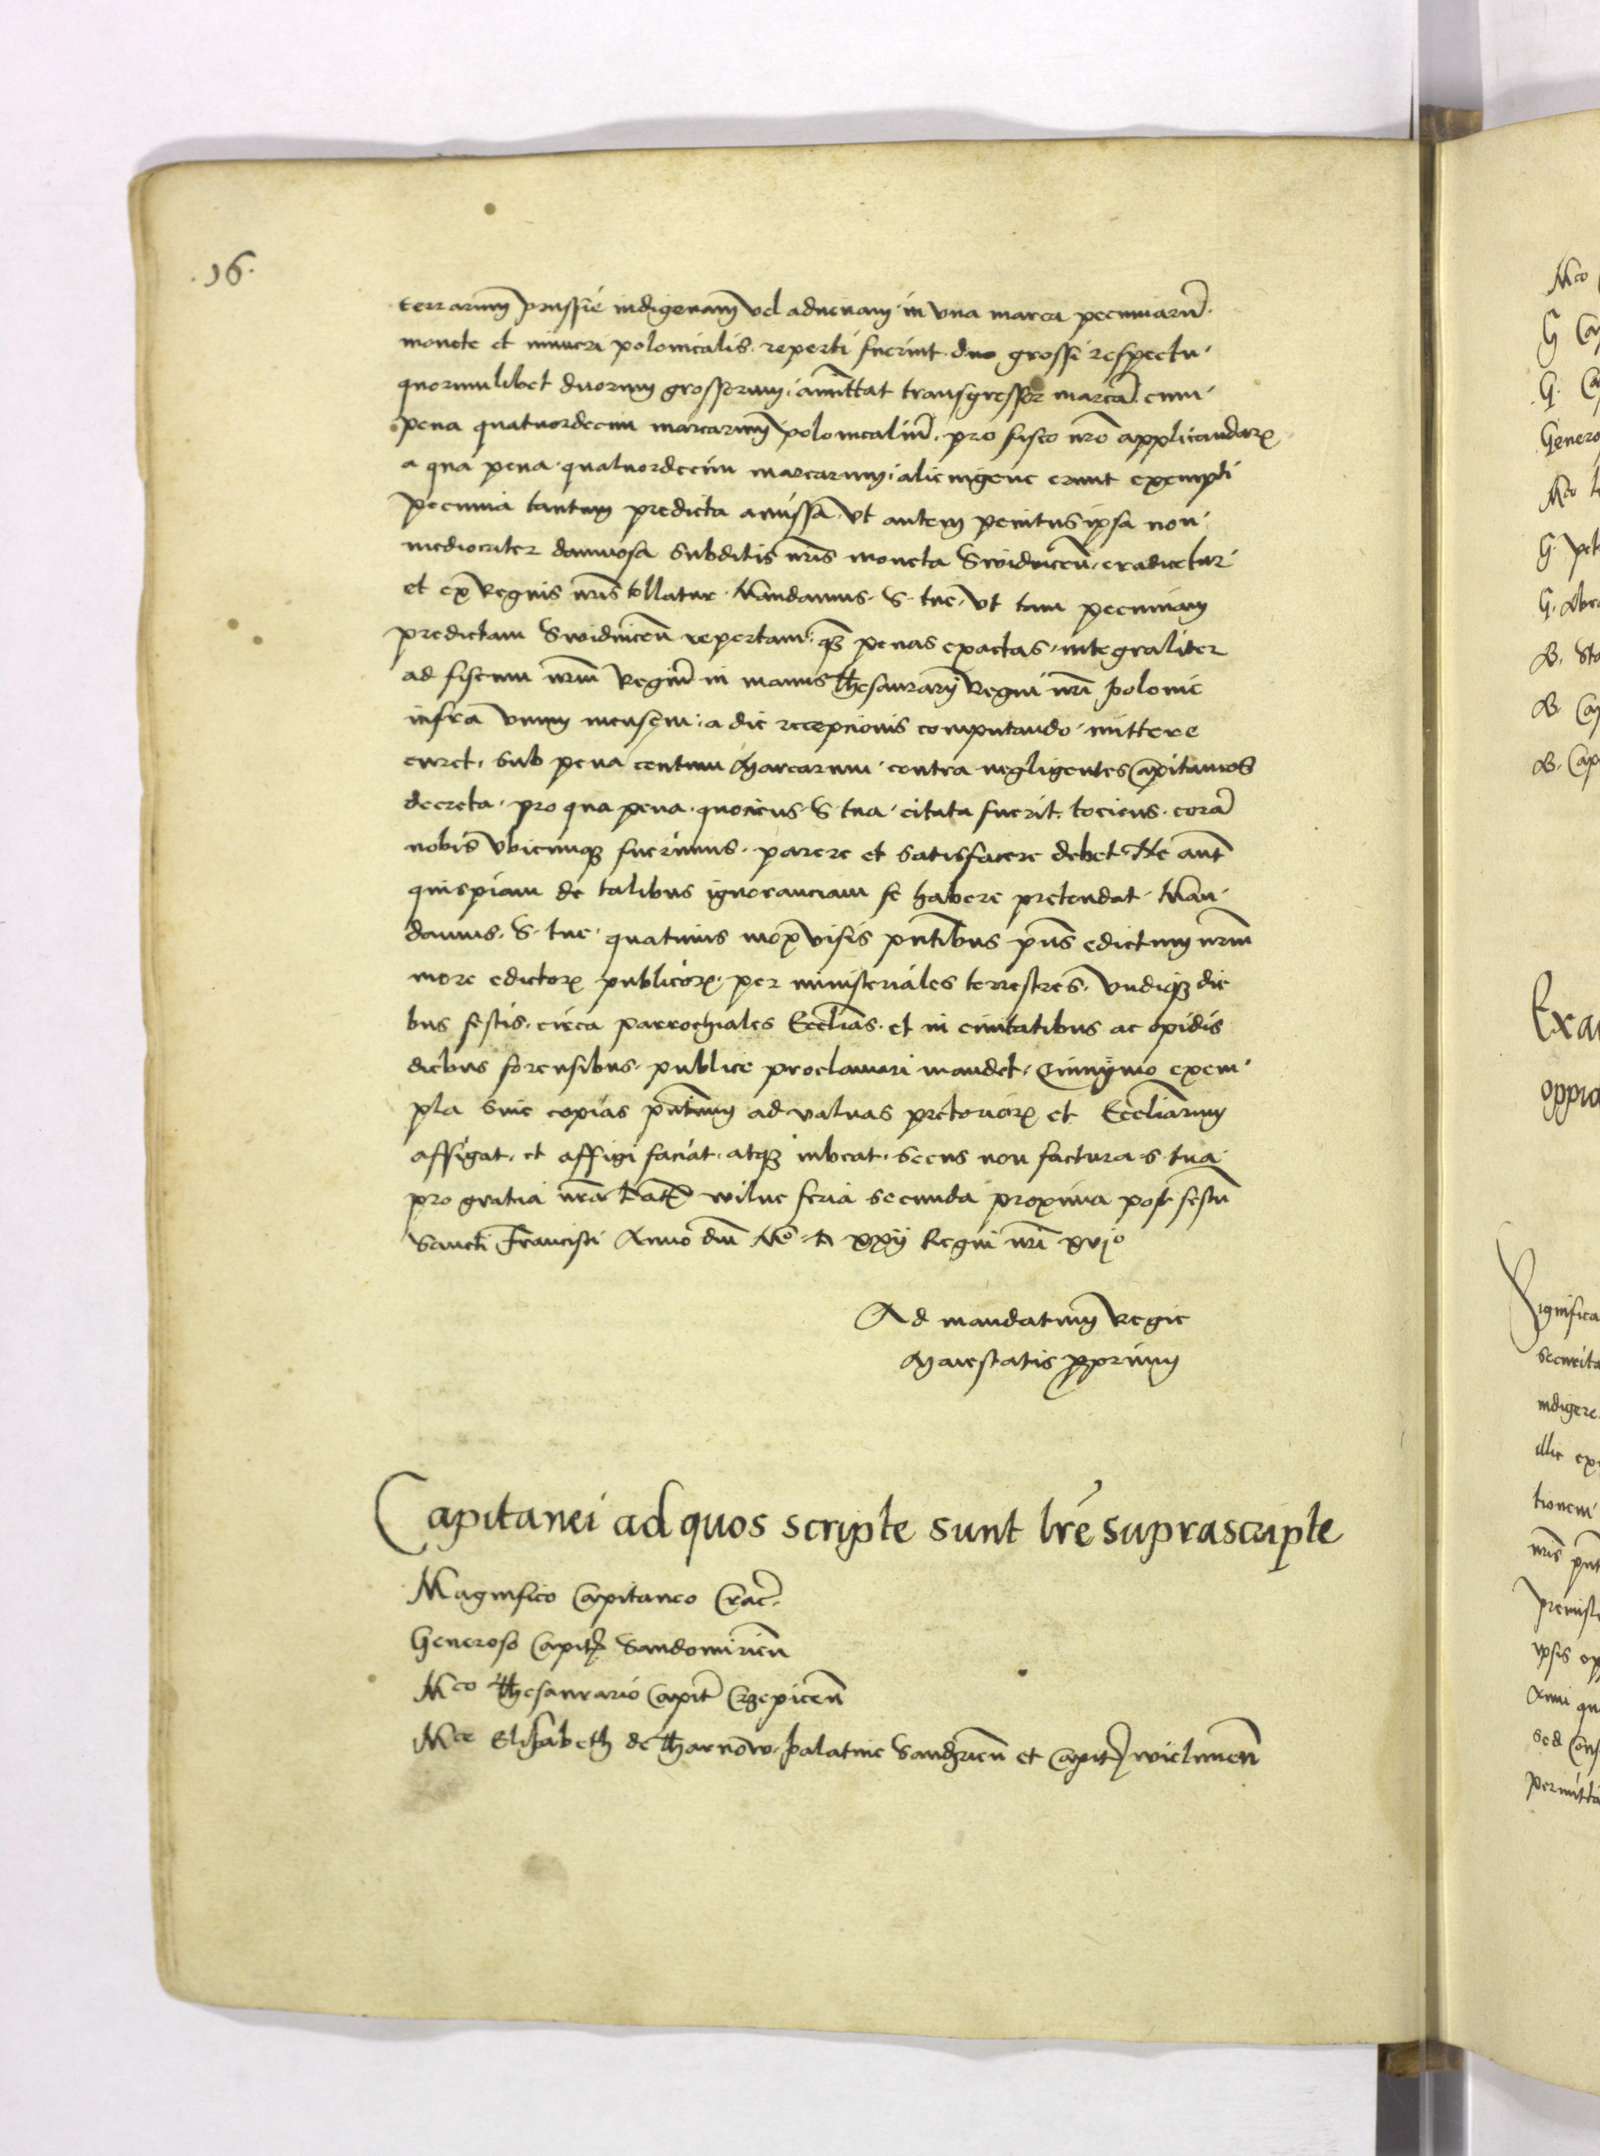 .16.
terrarum prussie indigenam vel aduenam in vna marca pecuniarũ
monete et numeri polonicalis reperti fuerint duo grossi respectu
quorumlibet duorum grossorum amittat transgressor marcã cum
pena quatuordecim marcarum polonicaliũ pro fisco nrõ applicandarꝝ
a qua pena quatuordecim marcarum alienigene erunt exempti
pecunia tantum predicta amissa Vt autem penitus ipsa non
mediocriter damnosa subditis nrĩs moneta Swidniceñ eradicetur
et ex Regnis nrĩs tollatur Mandamus S. tue vt tam pecuniam
predictam Swidniceñ repertam qꝫ penas exactas integraliter
ad fiscum nrũm Regiũ in manus Thesaurarij Regni nrĩ polonie
infra vnum mensem a die recepcionis computando mittere
curet, sub pena centum Marcarum contra negligentes Capitaneos
decreta pro qua pena quociens S. tua citata fuerit tociens corã
nobis vbicunqꝫ fuerimus parere et satisfacere debet Ne aut̃
quispiam de talibus ignoranciam se habere pretendat Man
damus S. tue quatinus mox visis pñtibus pñs edictum nrũm
more edictorꝝ publicorꝝ per ministeriales terrestres vndiqꝫ die
bus festis circa parrochiales Eccliãs et in ciuitatibus ac opidis
diebus forensibus publice proclamari mandet, Quinÿmo exem
pla siue copias pñtium ad valuas pretoriorꝝ et Eccliãrum
affigat et affigi faciat atqꝫ iubeat secus non factura S. tua
pro gratia nrã Datẽ wilne feria secunda proxima post festũ
Sancti Francisci Anno dñi Mo D xxij Regni nrĩ xvjo
Ad mandatum Regie
Maiestatis pprium
Capitanei ad quos scripte sunt lrẽ suprascripte
Magnifico Capitaneo Crac̃
Generoso Capit̃ Sandomirieñ
Mco Thesaurario Capit̃ Crzepiceñ
Mce Elisabeth de Tharnow palatine Sandrieñ et Capit̃ wieluneñ
Mco
G
G.
Genero
Mco
G. pet
G. Abra
B. Sta
B. Cap
B. Cap
Exa
oppid
Significa
indigere
illic
tionem
nrĩs
ipsis
sed
permitta